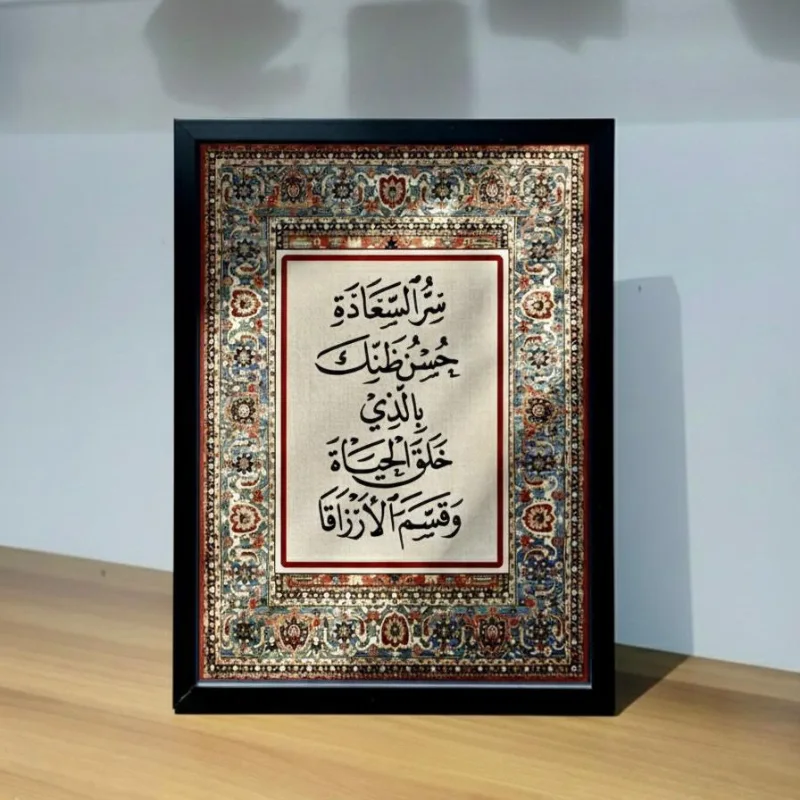 سِرُّ ٱلسَّعَادَةِ
حُسْنُ ظَنِّكَ
بِالَّذِيْ
خَلَقَ الْحَيَاةَ
وَقَسَّمَ ٱلْأَرْزَاقَا